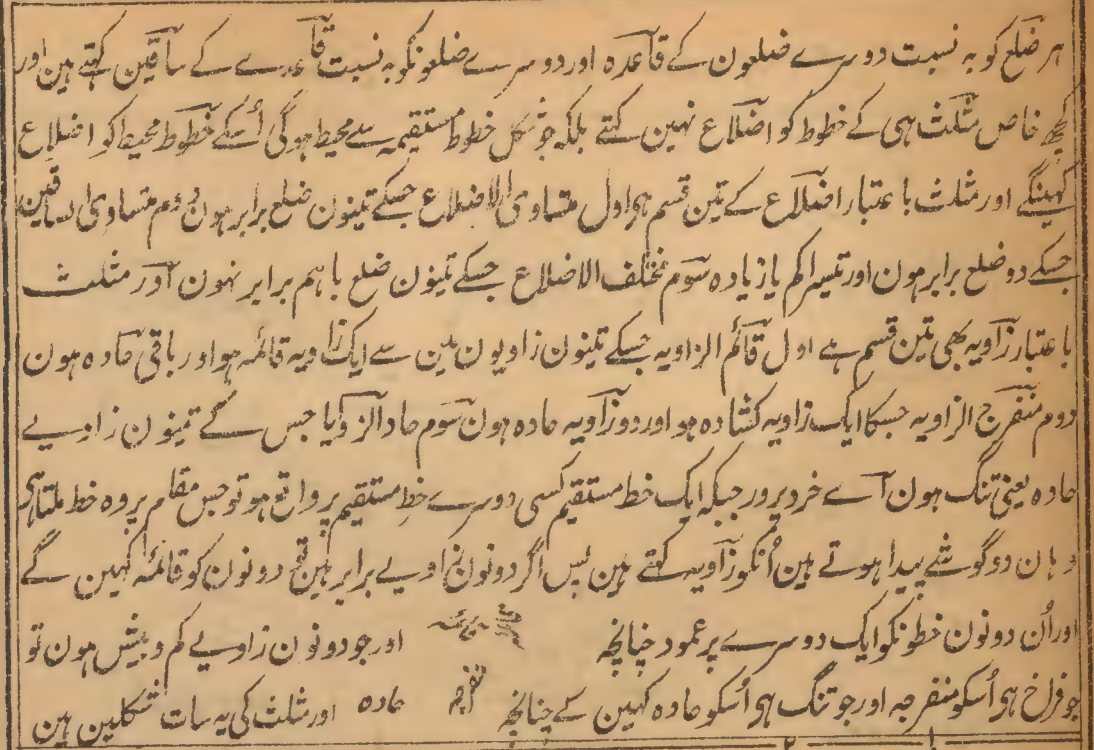 ہر ضلع کو بہ نسبت دوسرے ضلعون کے قاعدہ اور دوسرے ضلعونکو بہ نسبت قاعدے کے ساقین کہتے ہین اور
کچھ خاص مثلث ہی کے خطوط کو اضلاع نہین کہتے بلکہ جو شکل خطوط مستقیمہ سے محیط ہوگی اُسکے خطوط محیط کو اضلاع
کہینگے اور مثلث با عتبار اضلاع کے تین قسم ہی اول متساوی الاضلاع جسکے تینون ضلع برابر ہون دوم متساوی الساقین
جسکے دو ضلع برابر ہون اور تیسرا کم یا زیادہ سوم مختلف الاضلاع جسکے تینون ضلع باہم برابر نہون اور مثلث
با عتبار زاویہ بھی تین قسم ہے اول قائم الزاویہ جسکے تینون زاویون مین سے ایک زاویہ قائمہ ہو اور باقی حادہ ہون
دوم منفرج الزاویہ جسکا ایک زاویہ کشادہ ہو اور دو زاویہ حادہ ہون سوم حاد الزوایا جس کے تینون زاویے
حادہ یعنی تنگ ہون اے خردپرور جبکہ ایک خط مستقیم کسی دوسرے خط مستقیم پر واقع ہو تو جس مقام پر وہ خط ملتا ہی
وہان دو گوشے پیدا ہوتے ہین اُنکو زاویہ کہتے ہین پس اگر دونون زاویے برابر ہین تو دونون کو قائمہ کہین گے
اور اُن دونون خطونکو ایک دوسرے پر عمود چنانچہ اور جو دونون زاویے کم و بیش ہون تو
جو فراخ ہی اُسکو منفرجہ اور جو تنگ ہی اُسکو حادہ کہین گے چنانچہ منفرجہ حادہ اور مثلث کی یہ سات شکلین ہین